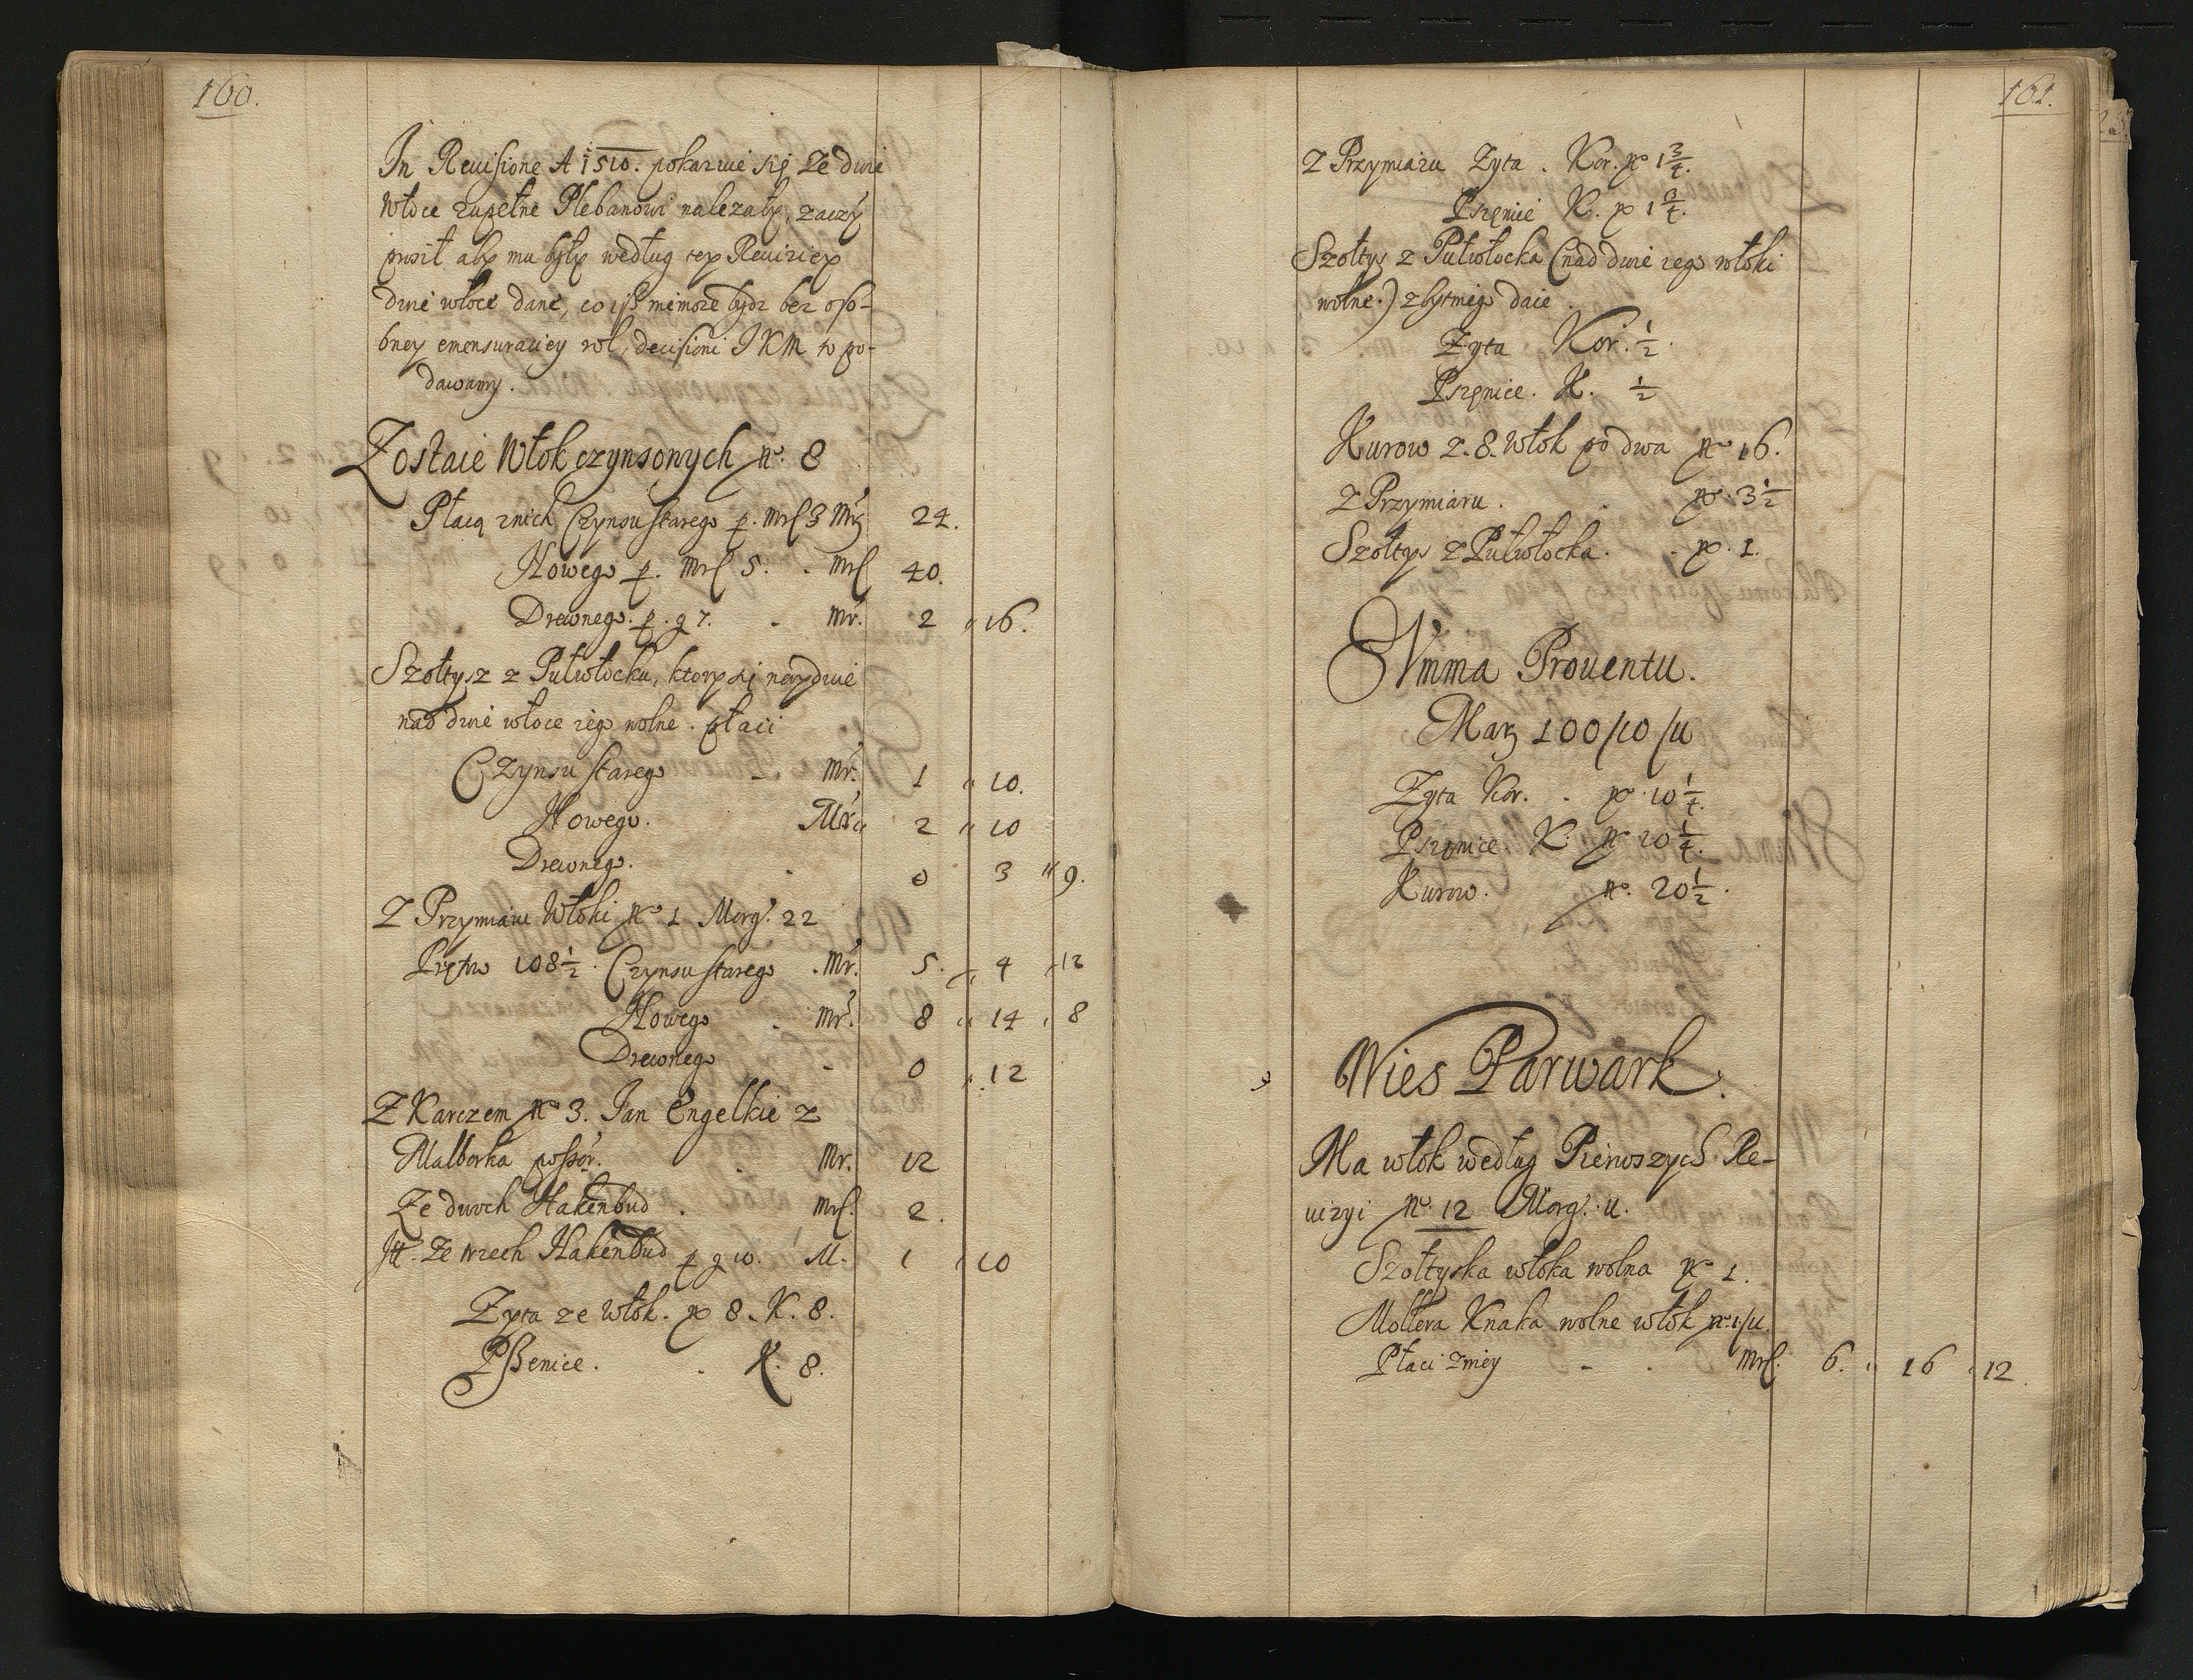 160.
In Reuisione A 1510. pokazuie się, Ze dwie
włoce zupełne Plebanowi nalezały, zaczy
prosił aby mu były według tey Reuiziey
dwie włoce dane, co iż niemoze bydz bez oso-
bney emensuraciey rol, decisioni IKM to po-
dawamy.
Zostaie Włok czynsonych No. 8
Płacą znich Czynsu starego p. Mrl 3 Mrl 24.
Nowego p. Mrl 5. Mrl 40.
Drewnego. p. g 7. Mr. 2 " 16.
Szołtysz z Pułwłocku, ktory się nayduie
nad dwie włoce iego wolne. płaci
Czynsu starego Mr. 1 " 10.
Nowego. Mr. 2 " 10
Drewnego. 0 3 " 9.
Z Przymiaru Włoki No 1 Morg. 22
Prętow 108½. Czynsu starego Mr. 5. " 4 " 12
Nowego Mr. 8 " 14 " 8
Drewnego 0 " 12
Z Karczem No 3. Jan Engelkie z
Malborka possor. Mr. 12
Ze dwoch Hakenbud Mrl. 2.
It. Ze trzech Hakenbud p g 10. M. 1 " 10
Zyta ze Włok. No 8. K. 8.
Pszenice. K. 8.
161.
Z Przymiaru Zyta. Kor. No 1¾.
Pszęnice K. No 1¾.
Szołtys z Pułwłocka (nad dwie iego włoki
wolne.) zbytniego daie
Zyta Kor. ½.
Pszęnice. K. ½
Kurow z. 8. Włok po dwa No 16.
Z Przymiaru. No. 3½
Szołtys z Pułwłocka. No. 1.
Summa Prouentu.
Marz 100/10/11
Zyta Kor. No 10¼.
Pszęnice. K. No 10¼.
Kurow. No. 20½.
Wies Parwark.
Ma włok według Pierwszych Re-
uizyi No. 12 Morg. 11.
Szołtyska włoka wolna No 1.
Moltera Knaka wolne włok No 1/11.
Płaci zniey Mrl. 6. " 16 " 12.